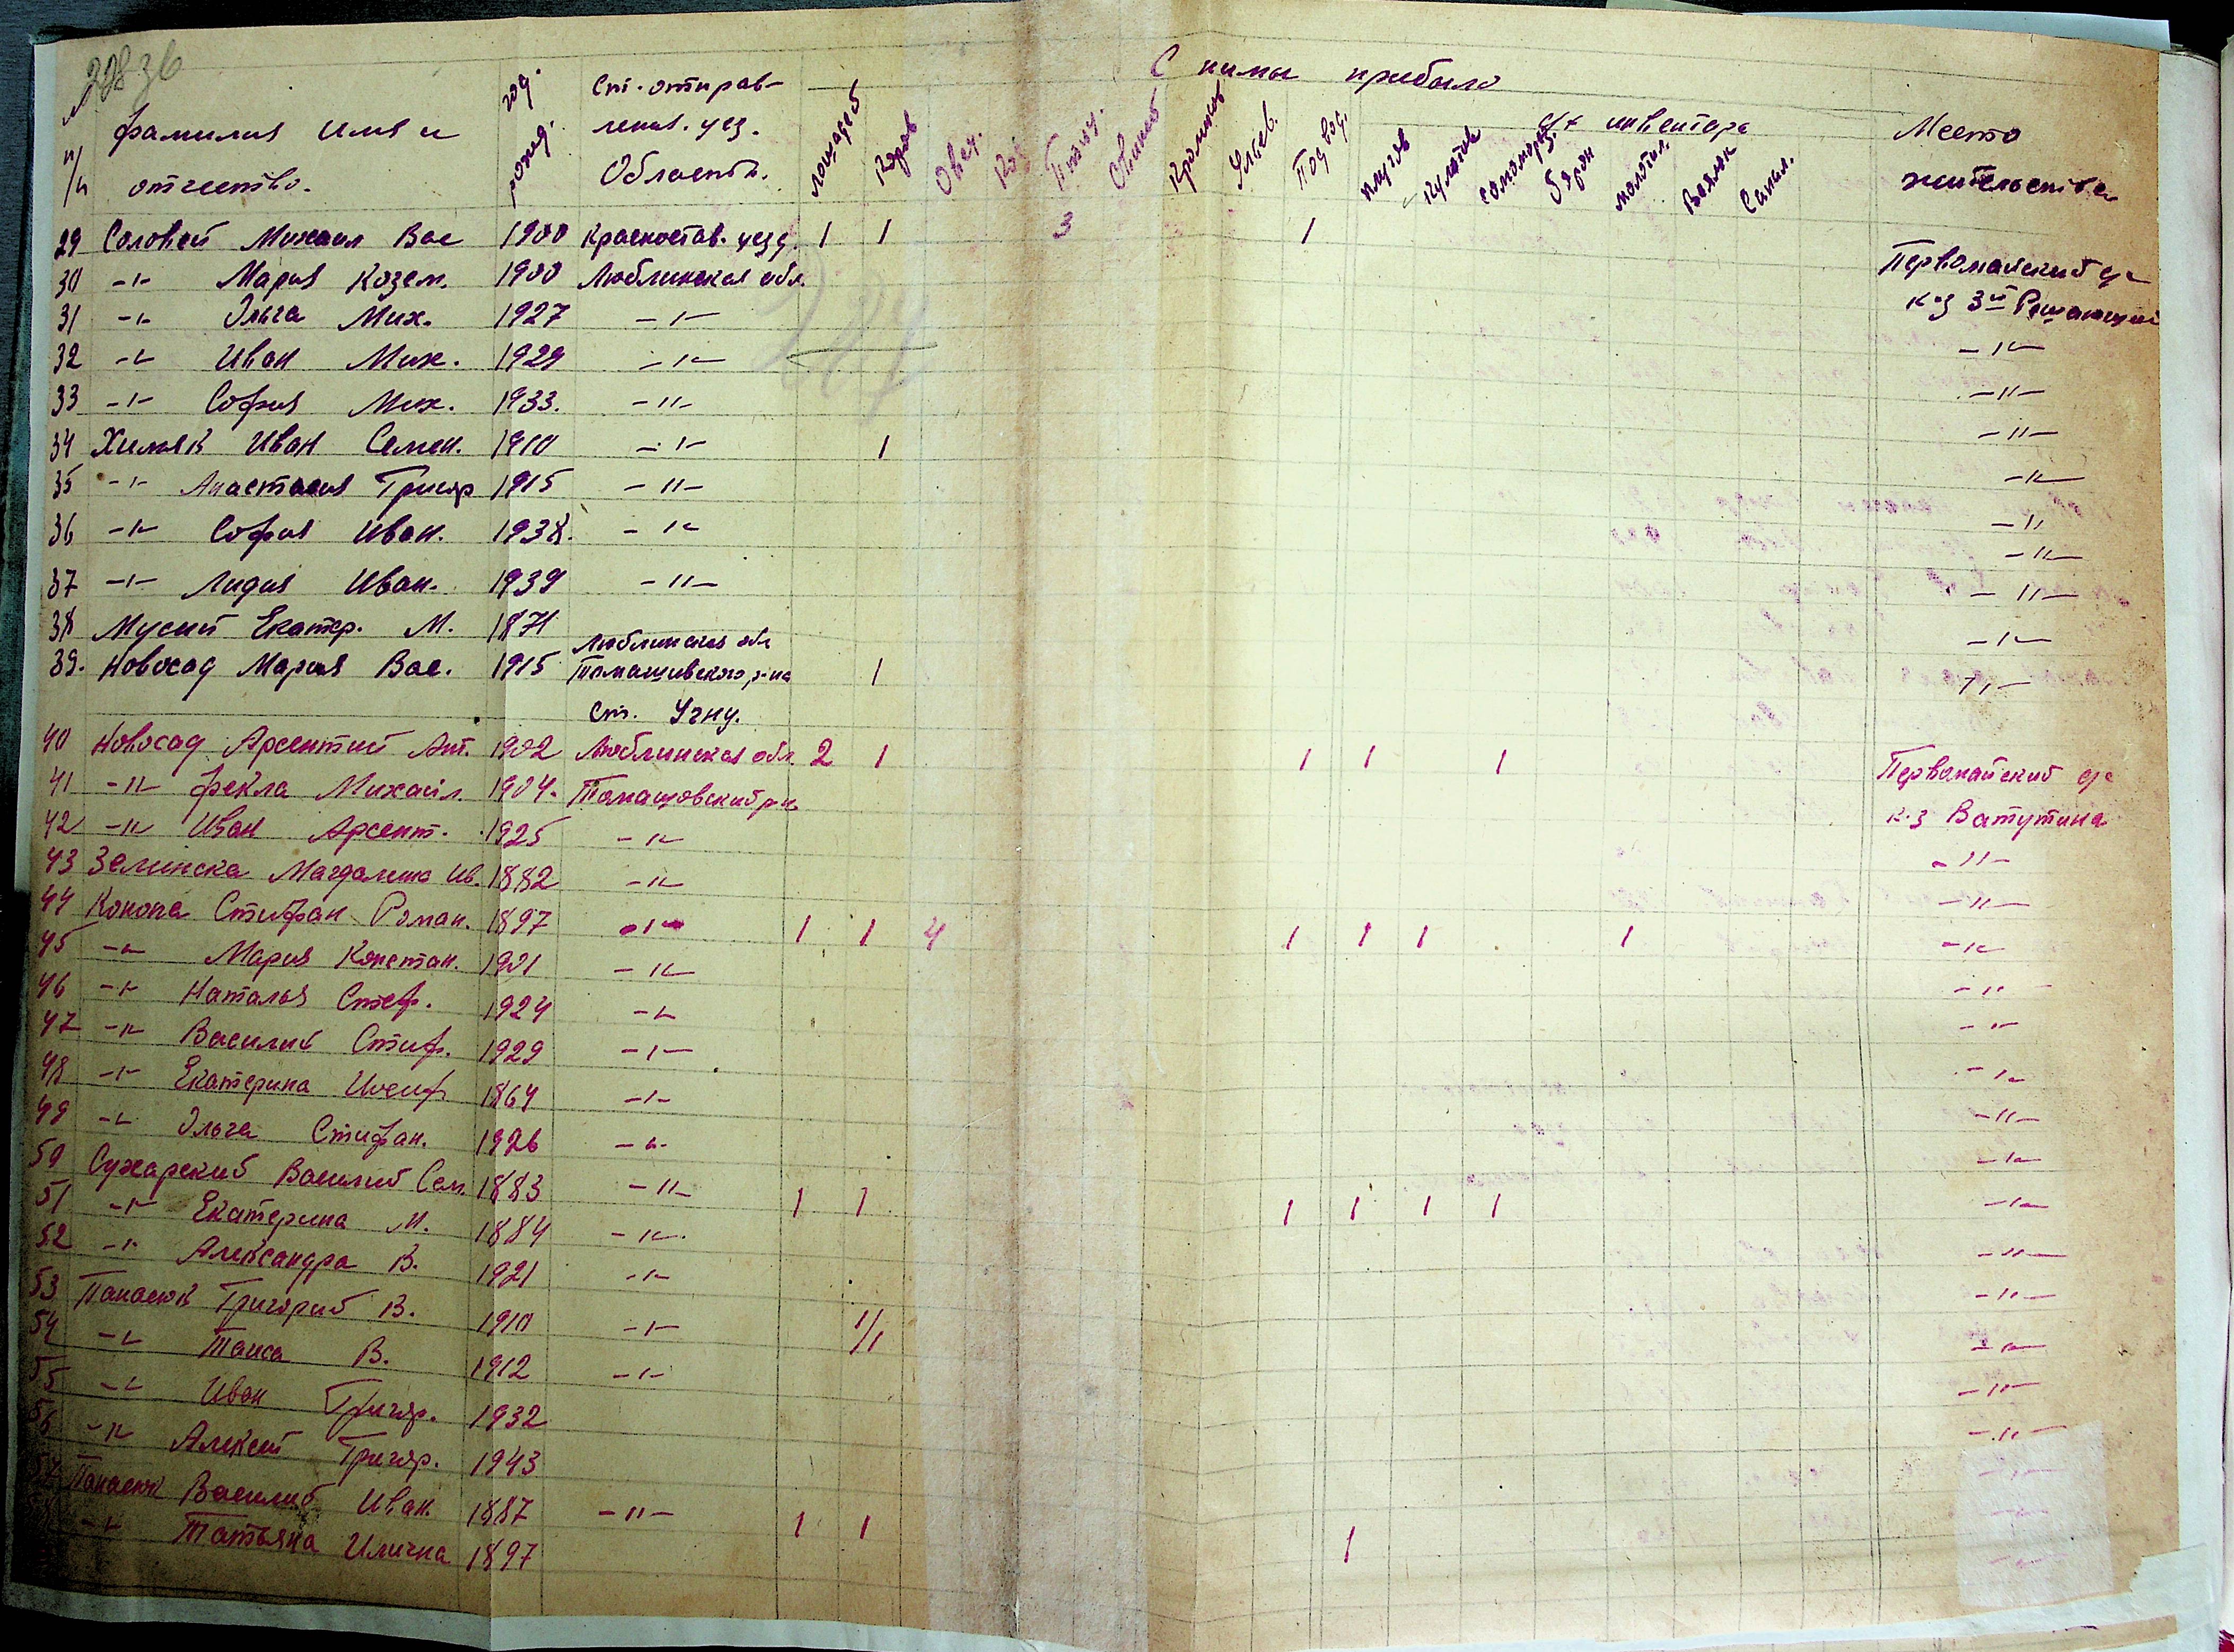 328 зв
№ п/п Фамилия имя и отчество. год. рожд. Ст. отправ- С ними прибыло
ления. уез. с/х инвентаря Место
Областъ. лошадей Коров Овец. Коз Птиц. Свиней Кроликов Ульев. Подвод. плугов Культив самоморз. борон молотил. Веялок Сапал. жительства
29 Соловей Михаил Вас 1900 Красностав. уезд. 1 1 3 1
30 -"- Мария Козем. 1900 Люблинская обл. Первомайский
31 -"- Ольга Мих. 1927 -"- к-з 3й Решающий
32 -"- Иван Мих. 1929 -"- -"-
33 -"- София Мих. 1933. -"- -"-
34 Химяк Иван Семен. 1910 -"- 1 -"-
35 -"- Анастасия Григор 1915 -"- -"-
36 -"- София Иван. 1938. -"- -"-
37 -"- Лидия Иван. 1939 -"- -"-
38 Мусий Екатер. М. 1871 -"-
Люблинская обл
39. Новосад Мария Вас. 1915 Томашивского р-на 1 -"-
Ст. Угну.
40 Новосад Арсентий Ант. 1902 Люблинская обл. 2 1 1 1 1 Первомайский
41 -"- Фекла Михайл. 1904. Томашовский р-н к-з Ватутина
42 -"- Иван Арсент. 1925 -"- -"-
43 Зелинска Магдалена Ив. 1882 -"- -"-
44 Конопа Стифан Роман. 1897 -"- 1 1 4 1 1 1 1 -"-
45 -"- Мария Констан. 1901 -"- -"-
46 -"- Наталья Стеф. 1924 -"- -"-
47 -"- Василий Стиф. 1929 -"- -"-
48 -"- Екатерина Иосиф. 1864 -"- -"-
49 -"- Ольга Стифан. 1926 -"- -"-
50 Сухарский Василий Сем. 1883 -"- 1 1 1 1 1 1 -"-
51 -"- Екатерина М. 1884 -"- -"-
52 -"- Александра В. 1921 -"- -"-
53 Панасюк Григорий В. 1910 -"- 1/1 -"-
54 -"- Таиса В. 1912 -"- -"-
55 -"- Иван Григор. 1932 -"-
56 -"- Алексей Григор. 1943 -"-
57 Панасюк Василий Иван. 1887 -"- 1 1 1 -"-
-"- Татьяна Илична 1897 -"-